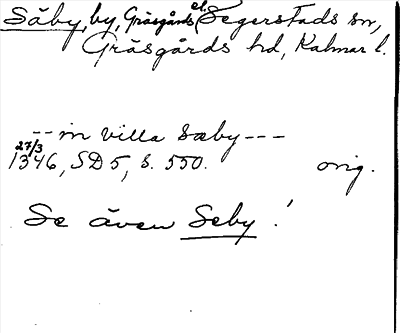 Säby, by, Gräsgårds el. Segerstads sn,
Gräsgårds hd, Kalmar l.
-- in villa sæby ---
27/3
1346, SD 5, s. 550. orig.
Se även Seby!